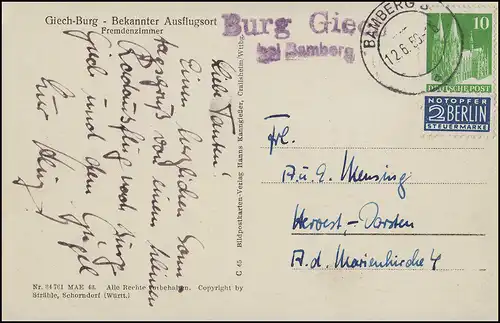 Giech-Burg - Bekannter Ausflugsort
Fremdenzimmer
Burg Giech
bei Bamberg
BAMBERG
12.6.50
10
DEUTSCHE POST
NOTOPFER
2 BERLIN
STEUERMARKE
Liebe Tanten!
Einen herzlichen Sonn-
tagsgruß von einem kleinen
Radausflug nach Burg
Giech und dem
Euer
Frl.
A. u. E. Mensing
Hervest-Dorsten
A. d. Marienkirche 4
C 45 Bildpostkarten-Verlag Hanns Kansgießer, Crailsheim/Wttbg.
Nr. 84761 MAE 48. Alle Rechte vorbehalten. Copyright by
Stràhle, Schorndorf (Württ.)